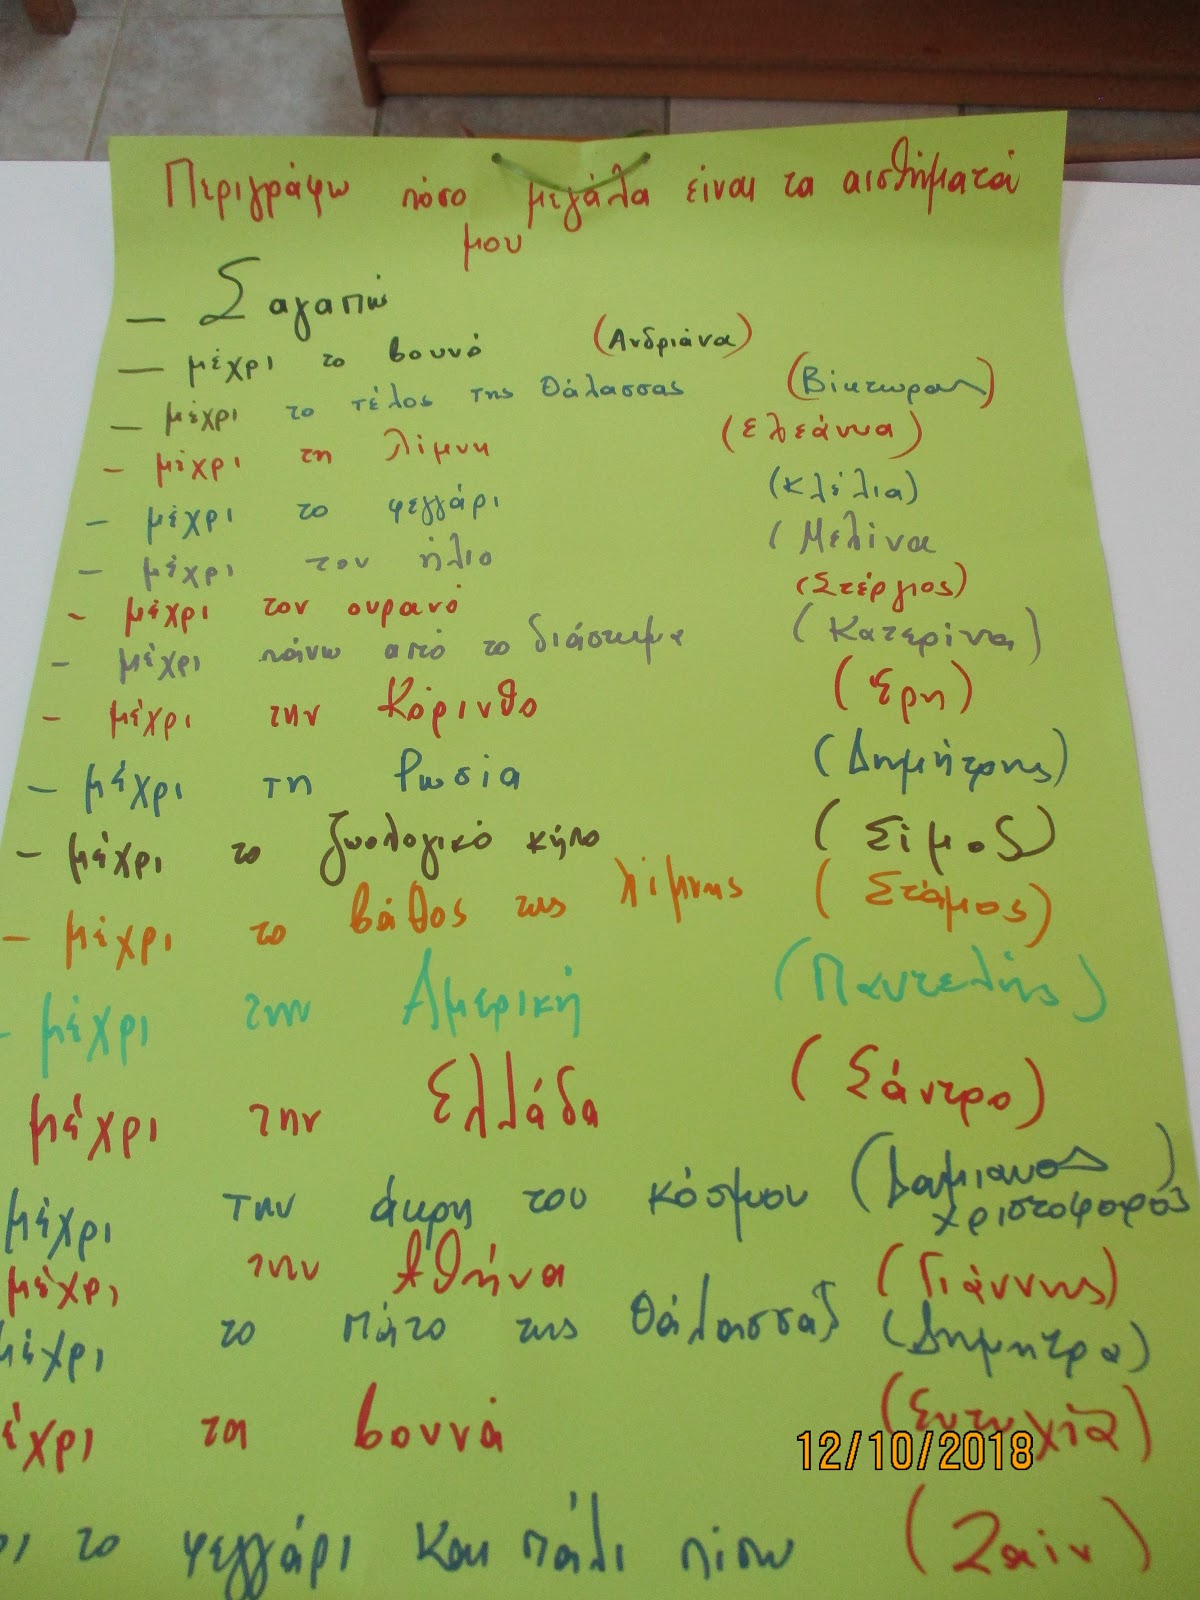 Περιγράφω πόσο μεγάλα είναι τα αισθήματά
μου
— Σαγαπώ
— μέχρι το βουνό (Ανδριάνα)
— μέχρι το τέλος της θάλασσας (Βίκτωρας)
- μέχρι τη λίμνη (Ελεάννα)
- μέχρι το φεγγάρι (Κλέλια)
- μέχρι τον ήλιο (Μελίνα
- μέχρι τον ουρανό (Στέργιος)
- μέχρι πάνω από το διάστημα (Κατερίνα)
- μέχρι την Κόρινθο (Έρη)
- μέχρι τη Ρωσία (Δημήτρης)
- μέχρι το ζωολογικό κήπο (Σίμος)
- μέχρι το βάθος της λίμνης (Στάμος)
- μέχρι την Αμερική (Παντελής)
μέχρι την Ελλάδα (Σάντρο)
μέχρι την άκρη του κόσμου (Δαμιανος
χριστοφορος)
μέχρι την Αθήνα (Γιάννης)
μέχρι το πάτο της θάλασσας (Δημητρα)
έχρι τα βουνά (Ευτυχία)
ρι το φεγγάρι και πάλι πίσω (Ζαίν)
12/10/2018